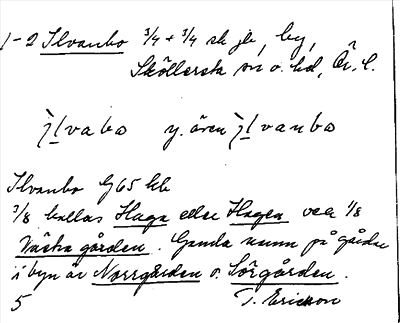 1-2 Ilvanbo 3/4 + 3/4 sk jb, by,
Sköllersta sn o. hd, Ör. l.
`ɪlvabo y. även `ɪlvanbo
Ilvanbo G 65 kb
3/8 kallas Haga eller Hagen och 1/8
Västra gården. Gamla namn på gårdar
i byn är Norrgården o. Sörgården.
5 T. Ericsson